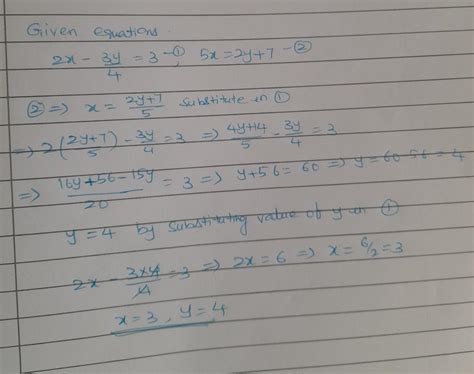 Given equations.
2x - 3y/4 = 3 -①, 5x = 2y+7 -②
② => x = 2y+7/5 substitute in ①
=> 2(2y+7/5) - 3y/4 = 3 => 4y+14/5 - 3y/4 = 3
=> 16y+56-15y/20 = 3 => y+56 = 60 => y = 60-56 = 4
y = 4 by substituting value of y in ①
2x - 3×4/4 = 3 => 2x = 6 => x = 6/2 = 3
x = 3, y = 4